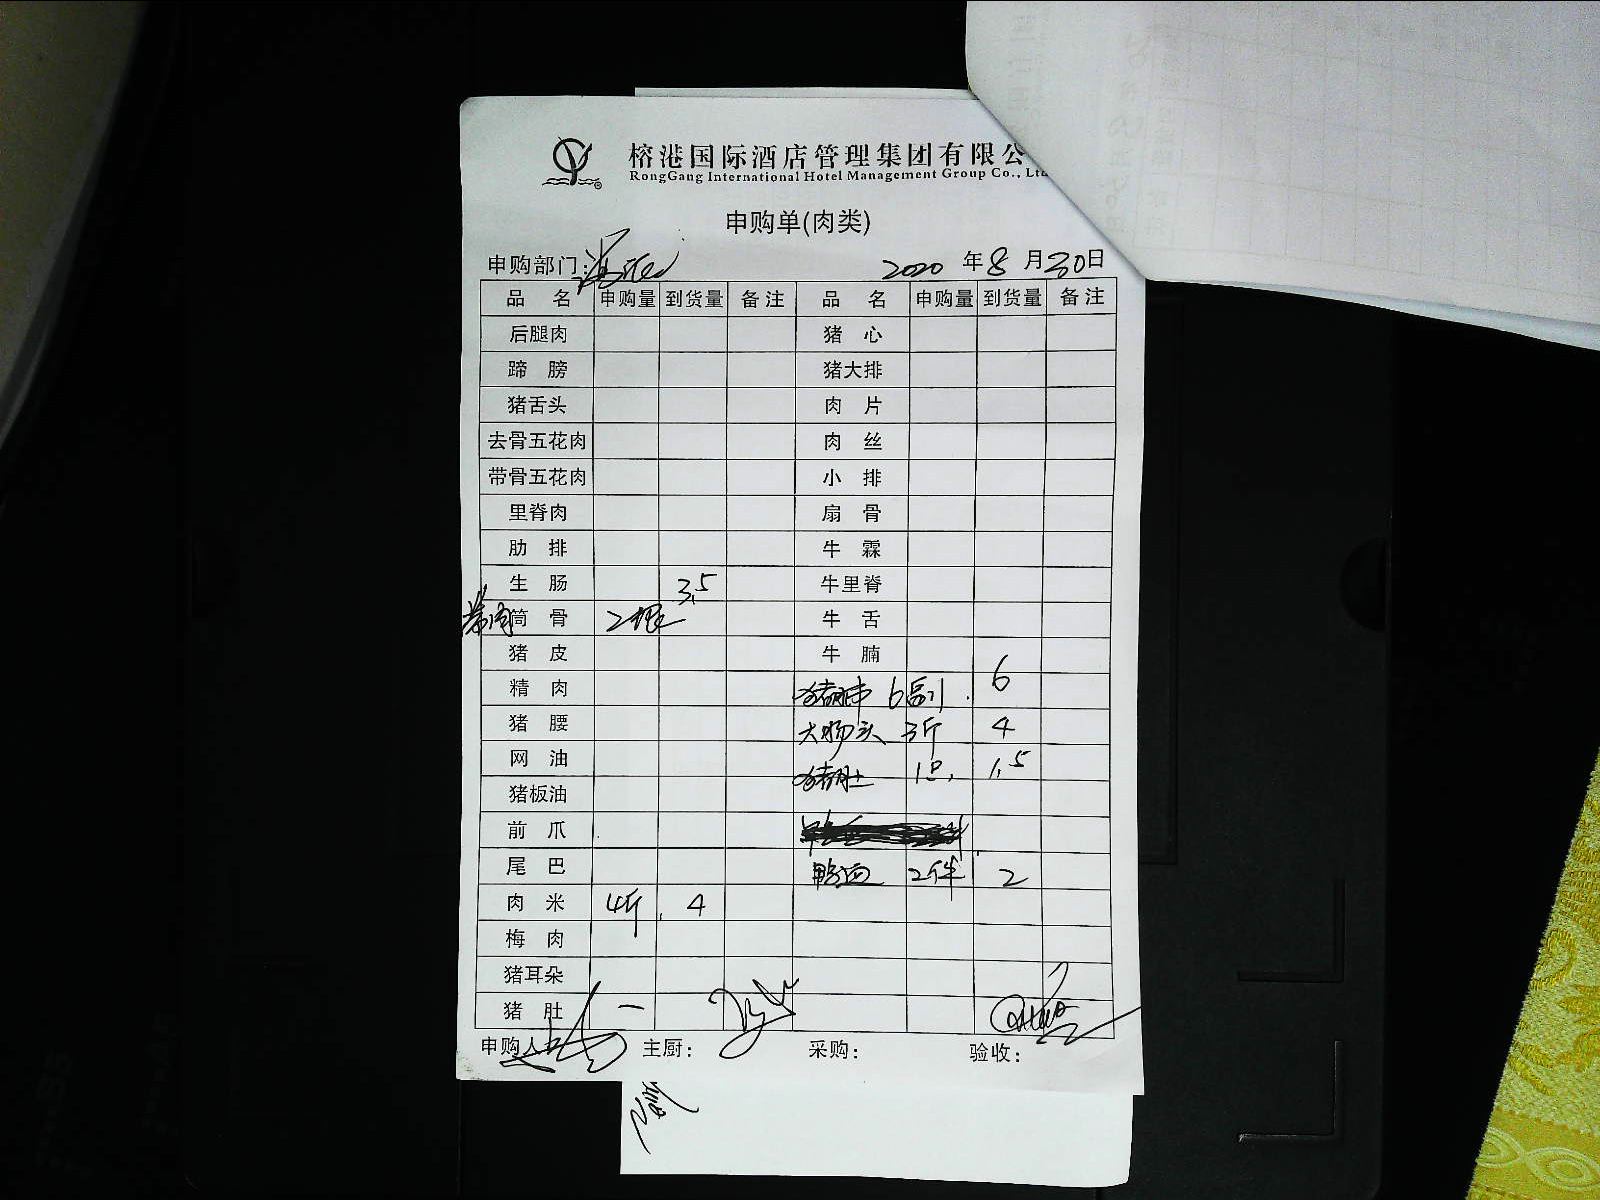 榕港国际酒店管理集团有限公
RongGang International Hotel Management Group Co., Ltd
申购单(肉类)
申购部门: 2020 年 8 月 30 日
品 名 申购量 到货量 备注 品 名 申购量 到货量 备注
后腿肉 猪 心
蹄 膀 猪大排
猪舌头 肉 片
去骨五花肉 肉 丝
带骨五花肉 小 排
里脊肉 扇 骨
肋 排 牛 霖
生 肠 3.5 牛里脊
带肉筒 骨 2根 牛 舌
猪 皮 牛 腩
精 肉 6副 6
猪 腰 大肠头 3斤 4
网 油 猪肚 1.5
猪板油
前 爪
尾 巴 鸭血 2件 2
肉 米 4斤 4
梅 肉
猪耳朵
猪 肚 一
申购人 主厨: 采购: 验收: